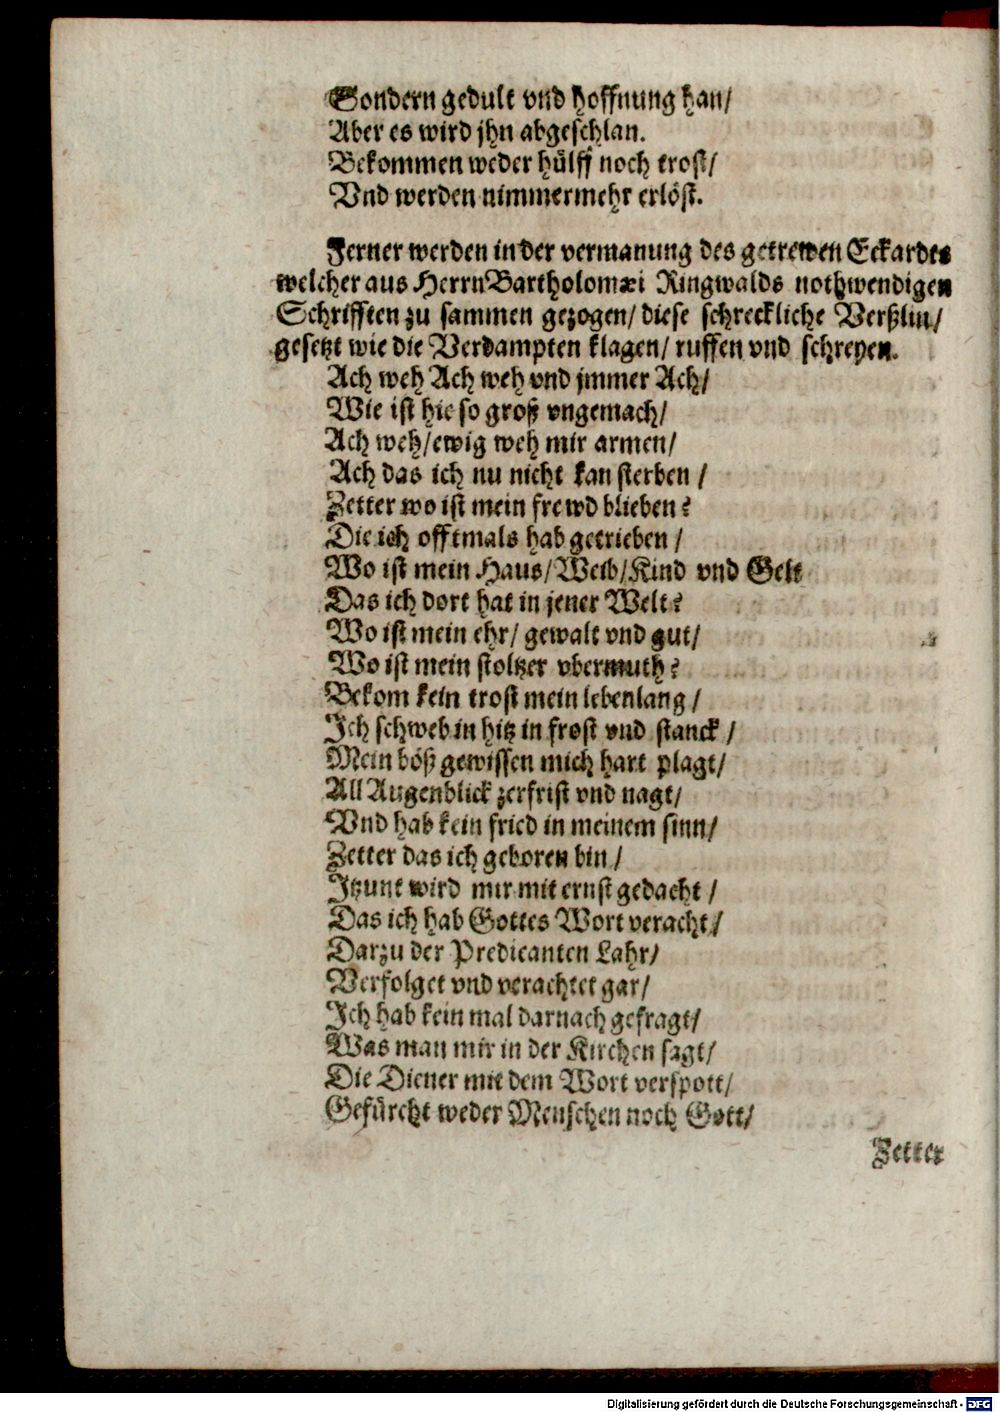 Sondern gedult vnd hoffnung han/
Aber es wird jhn abgeschlan.
Bekommen weder hülff noch trost/
Vnd werden nimmermehr erlöst.
Ferner werden in der vermanung des getrewen Eckardes
welcher aus Herrn Bartholomæi Ringwalds nothwendigen
Schrifften zu sammen gezogen/ diese schreckliche Verßlin/
gesetzt wie die Verdampten klagen/ ruffen vnd schreyen.
Ach weh Ach weh vnd jmmer Ach/
Wie ist hie so groß vngemach/
Ach weh/ewig weh mir armen/
Ach das ich nu nicht kan sterben /
Zetter wo ist mein frewd blieben?
Die ich offtmals hab getrieben /
Wo ist mein Haus/Weib/Kind vnd Gelt
Das ich dort hat in jener Welt?
Wo ist mein ehr/ gewalt vnd gut/
Wo ist mein stoltzer vbermuth?
Bekom kein trost mein lebenlang /
Ich schweb in hitz in frost vnd stanck /
Mein böß gewissen mich hart plagt/
All Augenblick zerfrist vnd nagt/
Vnd hab kein fried in meinem sinn/
Zetter das ich geboren bin /
Itzunt wird mir mit ernst gedacht /
Das ich hab Gottes Wort veracht/
Darzu der Predicanten Lahr/
Verfolget vnd verachtet gar/
Ich hab kein mal darnach gefragt/
Was man mir in der Kirchen sagt/
Die Diener mit dem Wort verspott/
Gefürcht weder Menschen noch Gott/
Zetter
Digitalisierung gefördert durch die Deutsche Forschungsgemeinschaft - DFG